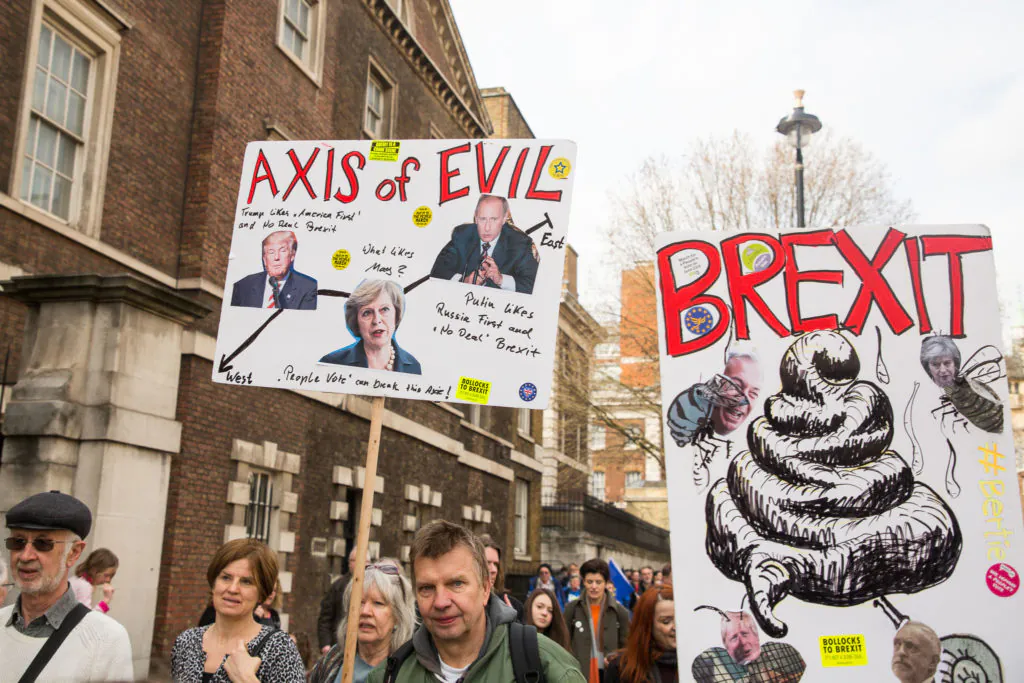 AXIS of EVIL
Trump likes „America First'
and No Deal Brexit
What likes
May?
East
Putin likes
Russia First and
„No Deal' Brexit
West
„People Vote' can break this Axis!
BOLLOCKS
TO BREXIT
BREXIT
#Bertie
BOLLOCKS
TO BREXIT